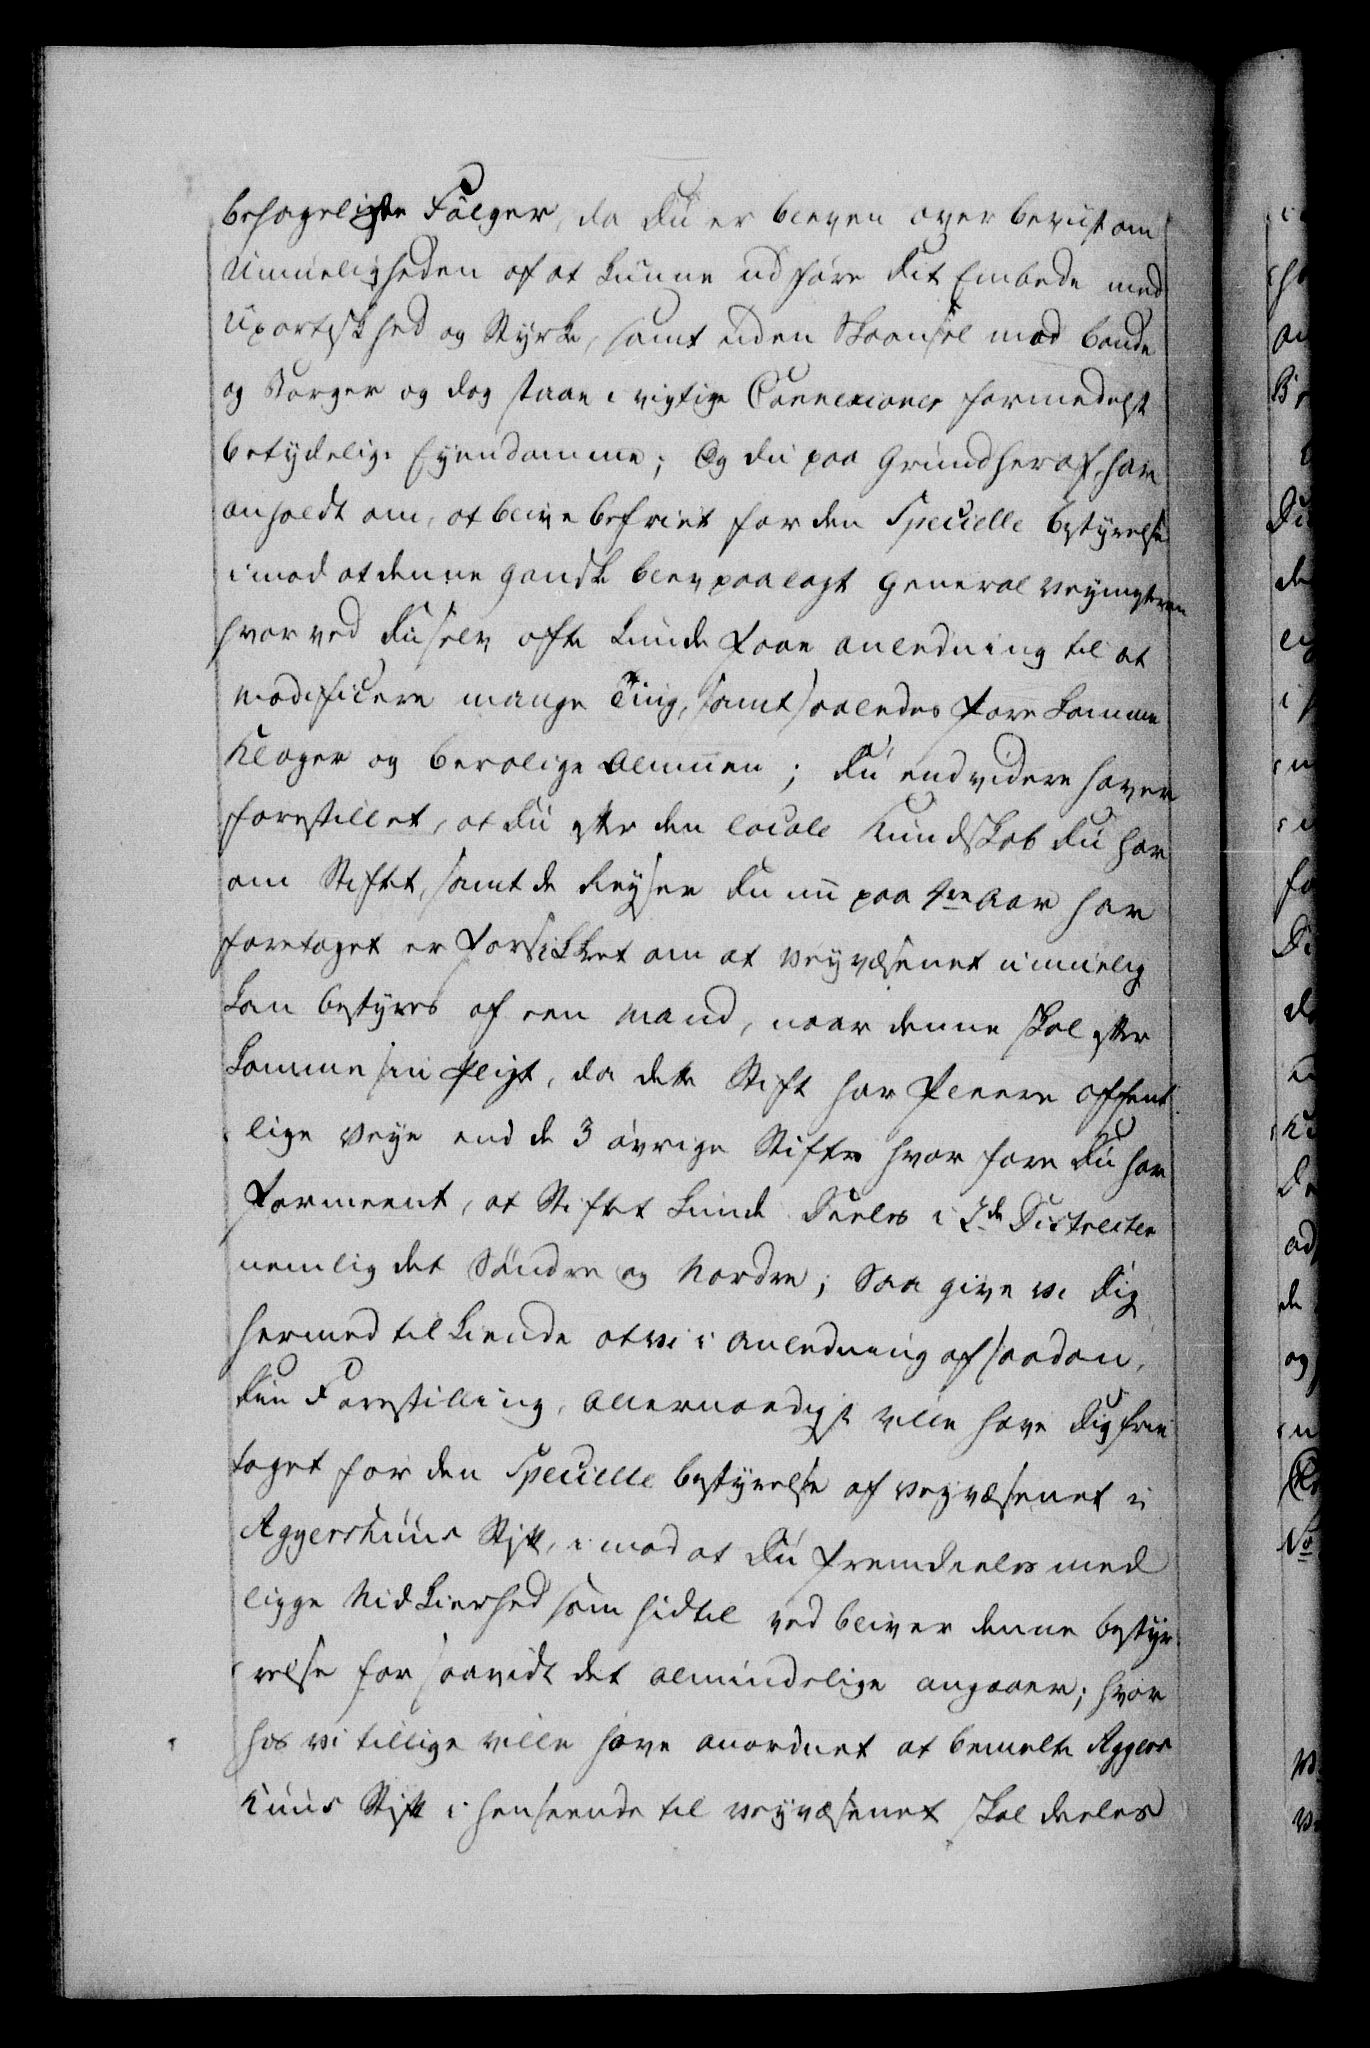 behageligste Følger, da Du er bleven overbevist om
Umueligheden af at kunne udføre dit Embede med
Upartiskhed og Styrke, samt uden Skaansel mod bonde
og Borger og dog staae i vigtige Connexioner formedelst
betydelige Eyendomme; Og du paa Grund heraf har
anholdt om, at blive befriet for den Specielle bestyrelse
imod at denne gandske blev paalagt General Veymesteren
hvorved Du selv ofte kunde faae anledning til at
modificere mange Ting, samt saaledes forekomme
Klager og berolige Almuen; Du end videre haver
forestillet, at Du efter den locale Kundskab Du har
om Stiftet, samt de Reyser Du nu paa 4re Aar har
foretaget er forsikkret om at Veyvæsenet umuelig
kan bestyres af een Mand, naar denne skal efter
komme sin Pligt, da dette Stift har fleere offent
lige Veye end de 3 øvrige Stifter hvorfore Du har
formeent, at Stiftet kunde deeles i 2de Districter
nemlig det Søndre og Nordre; Saa give vi Dig
hermed tilkiende at vi i anledning af saadan,
din Forestilling, Allernaadigst ville have dig frie
taget for den Specielle bestyrelse af Veyvæsenet i
Aggershuus Stift, imod at Du fremdeeles med
ligge Nidkierhed som hidtil vedbliver denne besty
relse for saavidt det almindelige angaaer; hvor
hos vi tillige ville have anordnet at bemelte Aggers
huus Stift i henseende til Veyvæsenet skal deeles